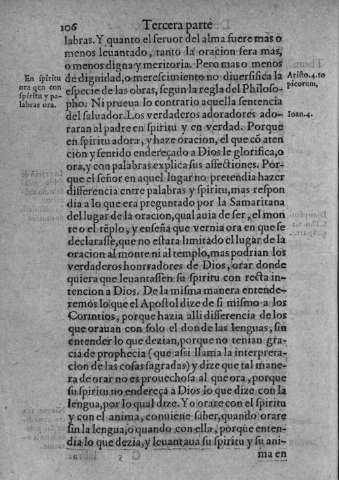 106 Tercera parte
labras. Y quanto el feruor del alma fuere mas o
menos leuantado, tanto la oracion sera mas,
o menos digna y meritoria. Pero mas o menos
de dignidad, o merescimiento no diuersifica la
especie de las obras, segun la regla del Philoso-
pho. Ni prueua lo contrario aquella sentencia
del saluador. Los verdaderos adoradores ado-
raran al padre en spiritu y en verdad. Porque
en spiritu adora, y haze oracion, el que cō aten
cion y sentido endereçado a Dios le glorifica, o
ora, y con palabras explica sus affectiones. Por
que el señor en aquel lugar no pretendia hazer
differencia entre palabras y spiritu, mas respon
dia a lo que era preguntado por la Samaritana
del lugar de la oracion, qual auia de ser, el mon
te o el tēplo, y enseña que vernia ora en que se
declarasse, que no estara limitado el lugar de la
oracion al monte ni al templo, mas podrian los
verdaderos honrradores de Dios, orar donde
quiera que leuantassen su spiritu con recta in-
tencion a Dios. De la misma manera entende-
remos lo que el Apostol dize de si mismo a los
Corintios, porque hazia alli differencia de los
que orauan con solo el don de las lenguas, sin
entender lo que dezian, porque no tenian gra-
cia de prophecia (que assi llama la interpreta-
cion de las cosas sagradas) y dize que tal mane-
ra de orar no es prouechosa al que ora, porque
su spiritu no endereça a Dios lo que dize con la
lengua, por lo qual dize. Yo orare con el spiritu
y con el anima, conuiene saber, quando orare
sin la lengua, o quando con ella, porque enten-
dia lo que dezia, y leuantaua su spiritu y su ani-
ma en
En spiritu
ora qen con
spiritu y pa-
labras ora.
Aristo. 4. to
picorum,
Ioan. 4.